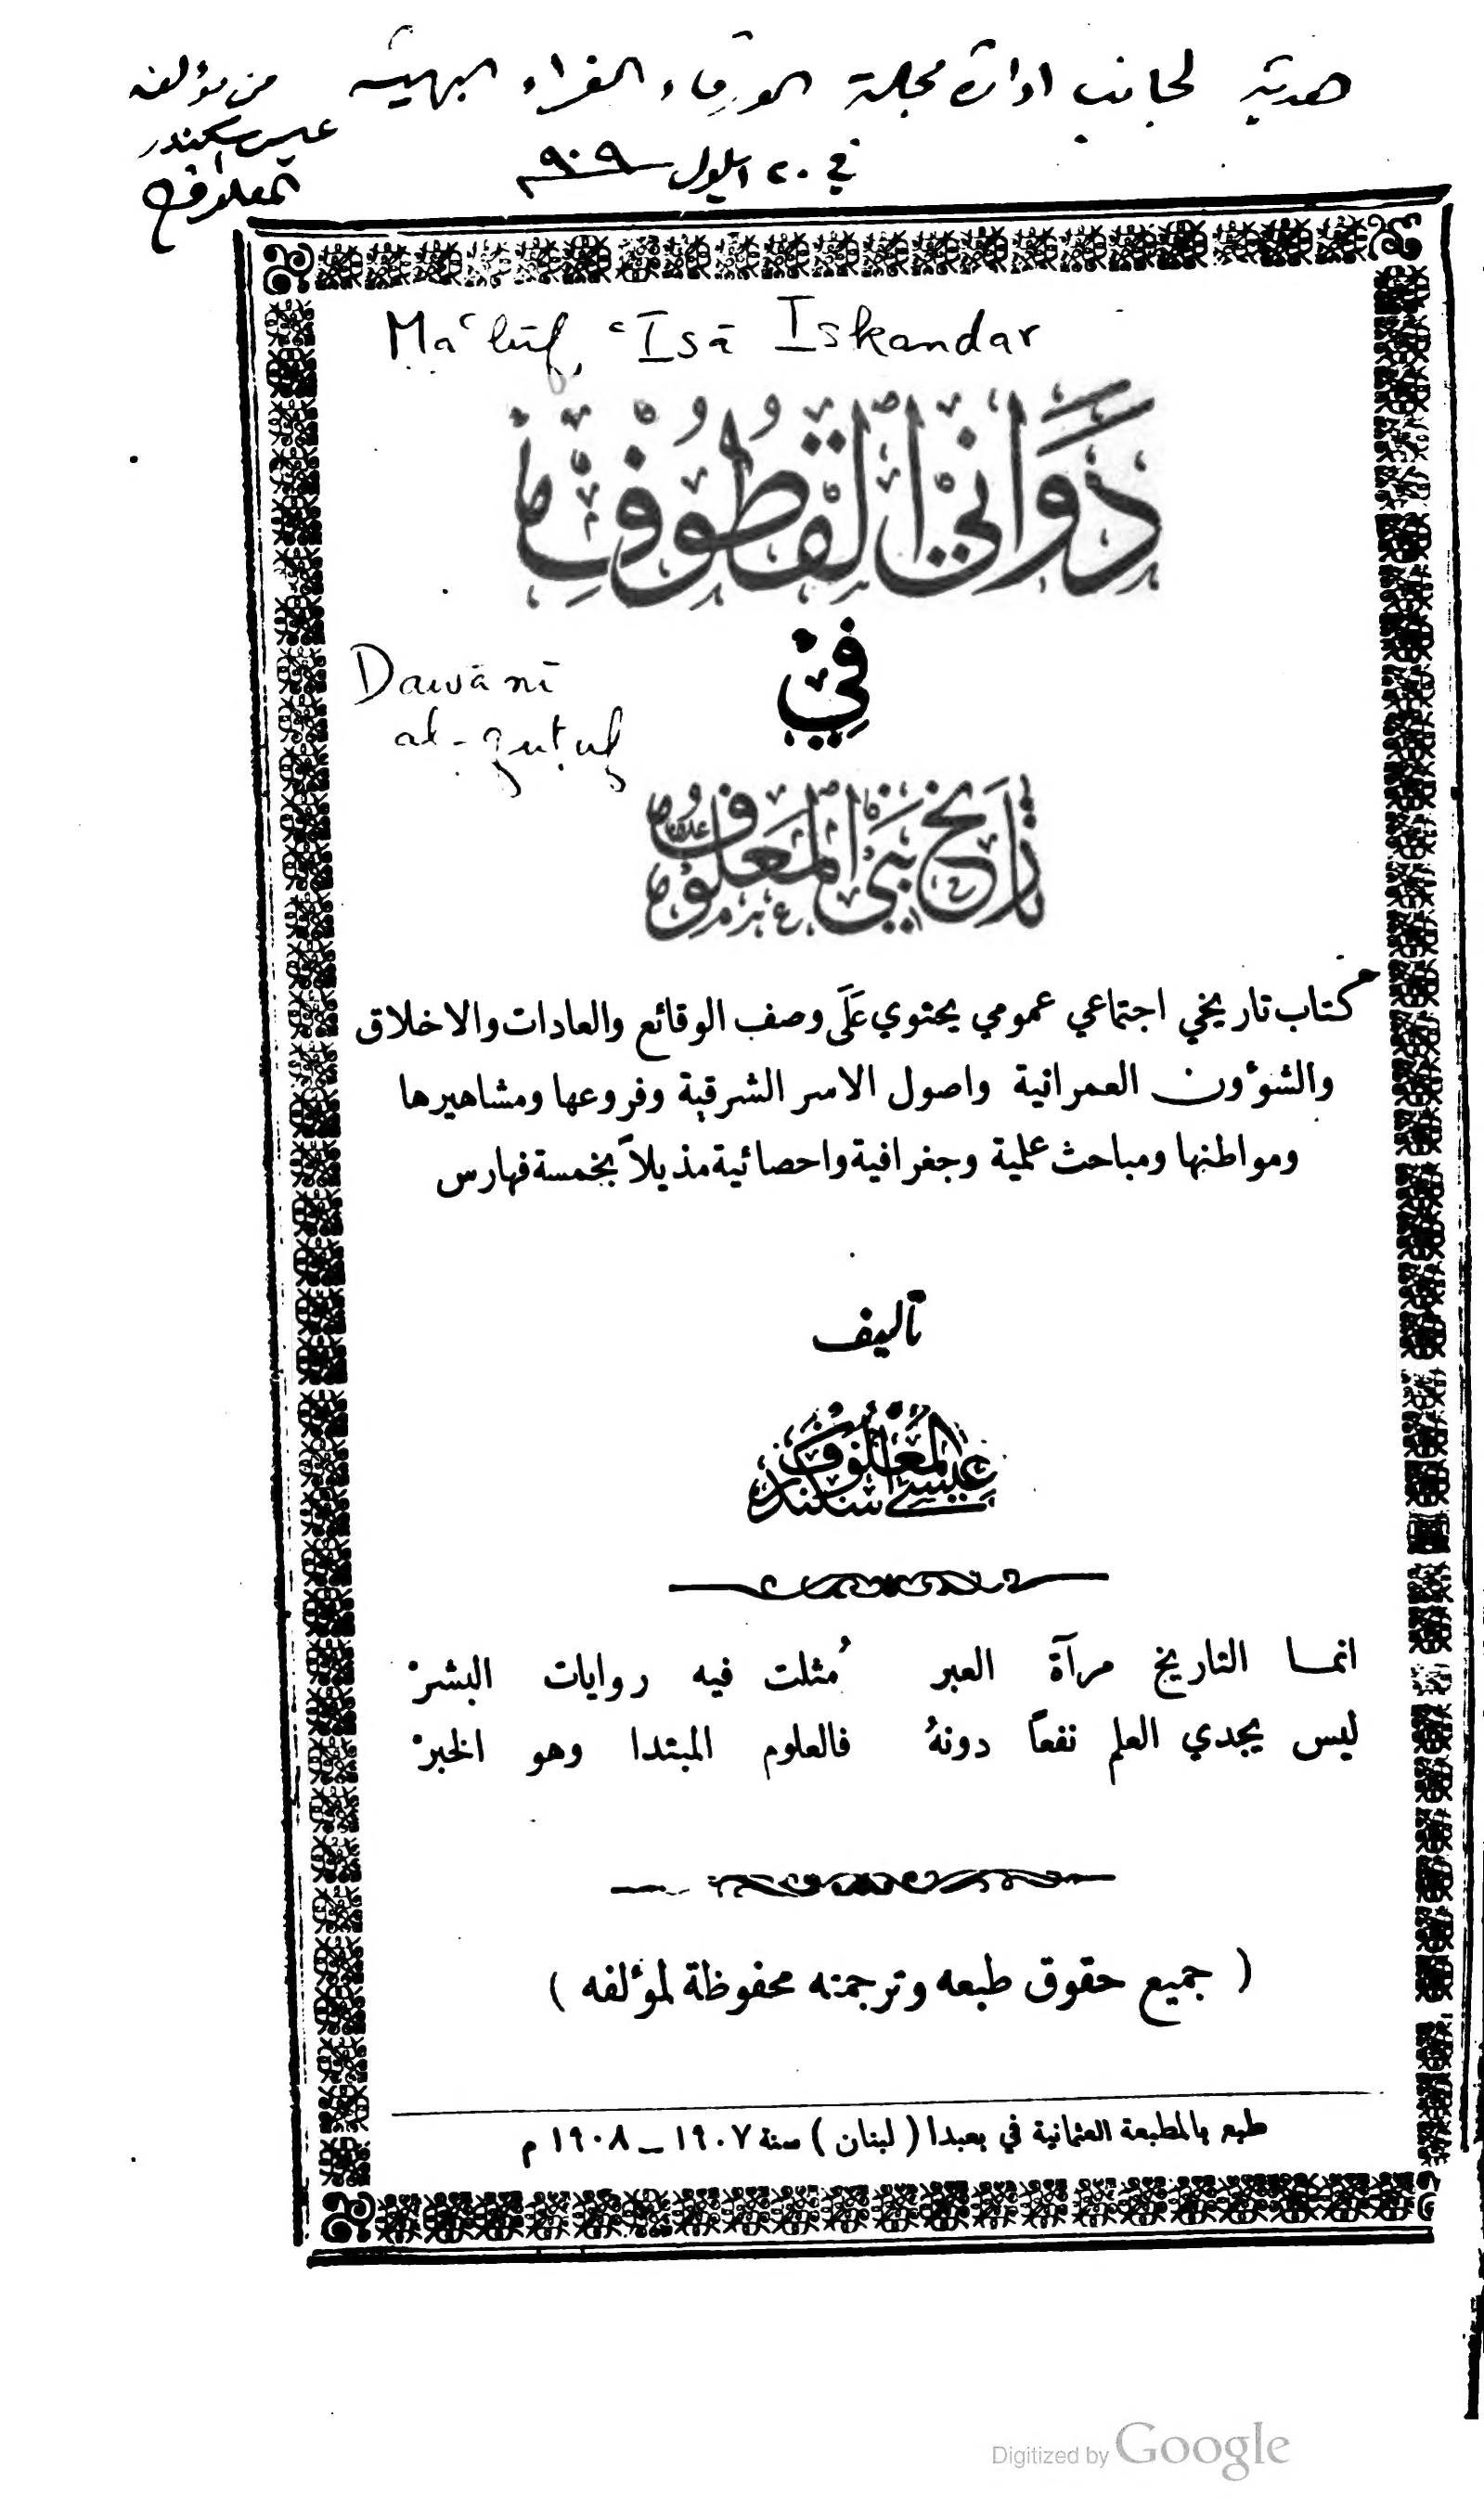 هدية لجانب ادارة مجلة الورقاء الغراء البهية من مؤلفه
عيسى اسكندر
المعلوف
في ٢٠ ايلول ٩٠٩
Ma'lūf, 'Īsā Iskandar
دَوَاني القُطُوفِ
في
Dawānī
al-quṭuf
تاريخ بني المعلوف
كتاب تاريخي اجتماعي عمومي يحتوي عَلَى وصف الوقائع والعادات والاخلاق
والشوٴون العمرانية واصول الاسر الشرقية وفروعها ومشاهيرها
ومواطنها ومباحث علمية وجغرافية واحصائية مذيلاً بخمسة فهارس
تأليف
عيسى اسكندر المعلوف
انما التاريخ مرآة العبر مُثلت فيه روايات البشرْ
ليس يجدي العلم نفعاً دونهُ فالعلوم المبتدا وهو الخبرْ
( جميع حقوق طبعه وترجمته محفوظة لمؤلفه )
طبع بالمطبعة العثمانية في بعبدا ( لبنان ) سنة ١٩٠٧ – ١٩٠٨ م
Digitized by Google